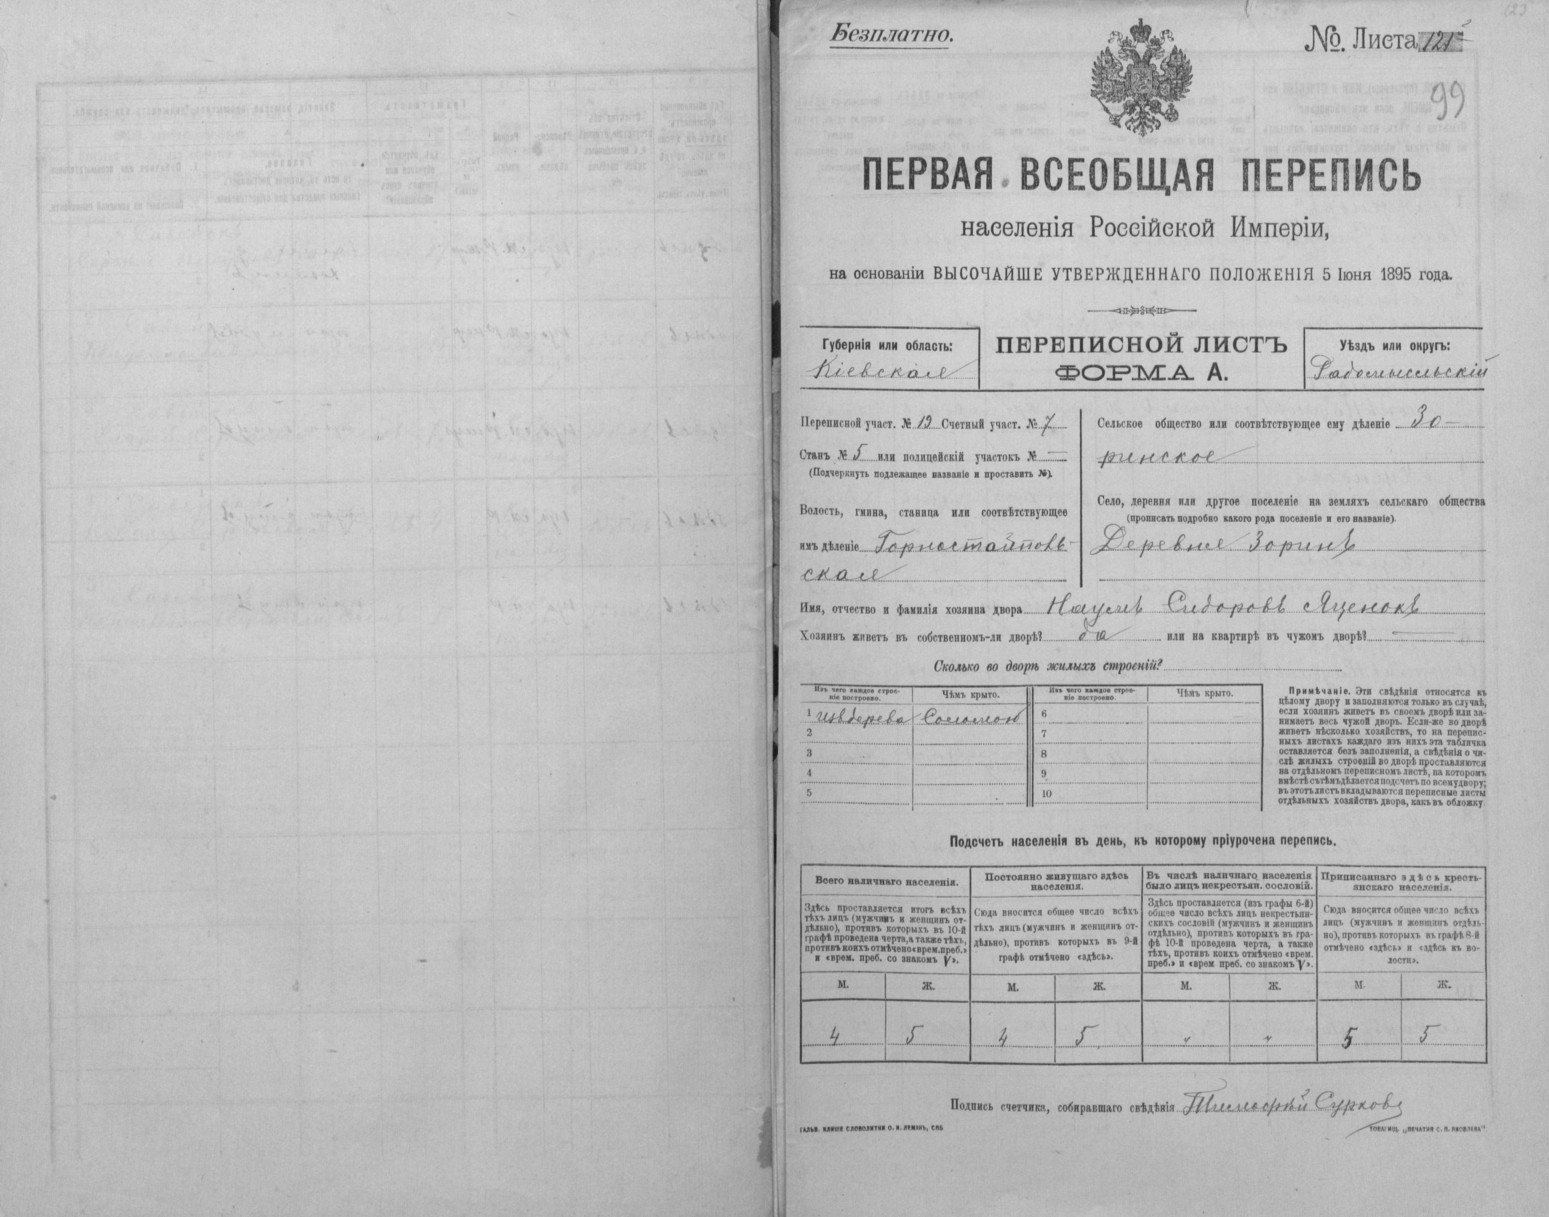 Безплатно.
№. Листа 121
99
ПЕРВАЯ ВСЕОБЩАЯ ПЕРЕПИСЬ
населенія Россійской Имперіи,
на основаніи ВЫСОЧАЙШЕ УТВЕРЖДЕННАГО ПОЛОЖЕНІЯ 5 Іюня 1895 года.
Губернія или область:
Кіевская
ПЕРЕПИСНОЙ ЛИСТЪ
ФОРМА А.
Уѣздъ или округъ:
Радомысльскій
Переписной участ. № 12 Счетный участ. № 7
Станъ № 5 или полицейскій участокъ № —
(Подчеркнуть подлежащее названіе и проставить №).
Волость, гмина, станица или соотвѣтствующее
имъ дѣленіе Горностайповь-
ская
Сельское общество или соотвѣтствующее ему дѣленіе Зо-
ринское
Село, деревня или другое поселеніе на земляхъ сельскаго общества
(прописать подробно какого рода поселеніе и его названіе).
Деревня Зоринъ
Имя, отчество и фамилія хозяина двора Наумъ Сидоровъ Яценокъ
Хозяинъ живетъ въ собственномъ-ли дворѣ? да или на квартирѣ въ чужомъ дворѣ? —
Сколько во дворѣ жилыхъ строеній?
Изъ чего каждое строе-
ніе построено.
Чѣмъ крыто.
Изъ чего каждое строе-
ніе построено.
Чѣмъ крыто.
1 Изъ дерева Соломою
2
3
4
5
6
7
8
9
10
Примѣчаніе. Эти свѣдѣнія относятся къ
цѣлому двору и заполняются только въ случаѣ,
если хозяинъ живетъ въ своемъ дворѣ или за-
нимаетъ весь чужой дворъ. Если-же во дворѣ
живетъ нѣсколько хозяйствъ, то на перепис-
ныхъ листахъ каждаго изъ нихъ эта табличка
оставляется безъ заполненія, а свѣдѣнія о чи-
слѣ жилыхъ строеній во дворѣ проставляются
на отдѣльномъ переписномъ листѣ, на которомъ
вмѣстѣ съ тѣмъ дѣлается подсчетъ по всему двору;
въ этотъ листъ вкладываются переписные листы
отдѣльныхъ хозяйствъ двора, какъ въ обложку
Подсчетъ населенія въ день, къ которому пріурочена перепись.
Всего наличнаго населенія.
Здѣсь проставляется итогъ всѣхъ
тѣхъ лицъ (мужчинъ и женщинъ от-
дѣльно), противъ которыхъ въ 10-й
графѣ проведена черта, а также тѣхъ,
противъ коихъ отмѣчено «врем. преб.»
и «врем. преб. со знакомъ V».
Постоянно живущаго здѣсь
населенія.
Сюда вносится общее число всѣхъ
тѣхъ лицъ (мужчинъ и женщинъ от-
дѣльно), противъ которыхъ въ 9-й
графѣ отмѣчено «здѣсь».
Въ числѣ наличнаго населенія
было лицъ некрестьян. сословій.
Здѣсь проставляется (изъ графы 6-й)
общее число всѣхъ лицъ некрестьян-
скихъ сословій (мужчинъ и женщинъ
отдѣльно), противъ которыхъ въ гра-
фѣ 10-й проведена черта, а также
тѣхъ, противъ коихъ отмѣчено «врем.
преб.» и «врем преб. со знакомъ V».
Приписаннаго здѣсь кресть-
янскаго населенія.
Сюда вносится общее число всѣхъ
лицъ (мужчинъ и женщинъ отдѣль-
но), противъ которыхъ въ графѣ 8-й
отмѣчено «здѣсь» и «здѣсь къ во-
лости».
М. Ж. М. Ж. М. Ж. М. Ж.
4 5 4 5 " " 5 5
Подпись счетчика, собиравшаго свѣдѣнія Тимофей Сурковъ
ГАЛЬВ. КЛИШЕ СЛОВОЛИТНИ О. И. ЛЕМАНЪ, СПБ
ТОВАРИЩ. „ПЕЧАТНЯ С. П. ЯКОВЛЕВА"